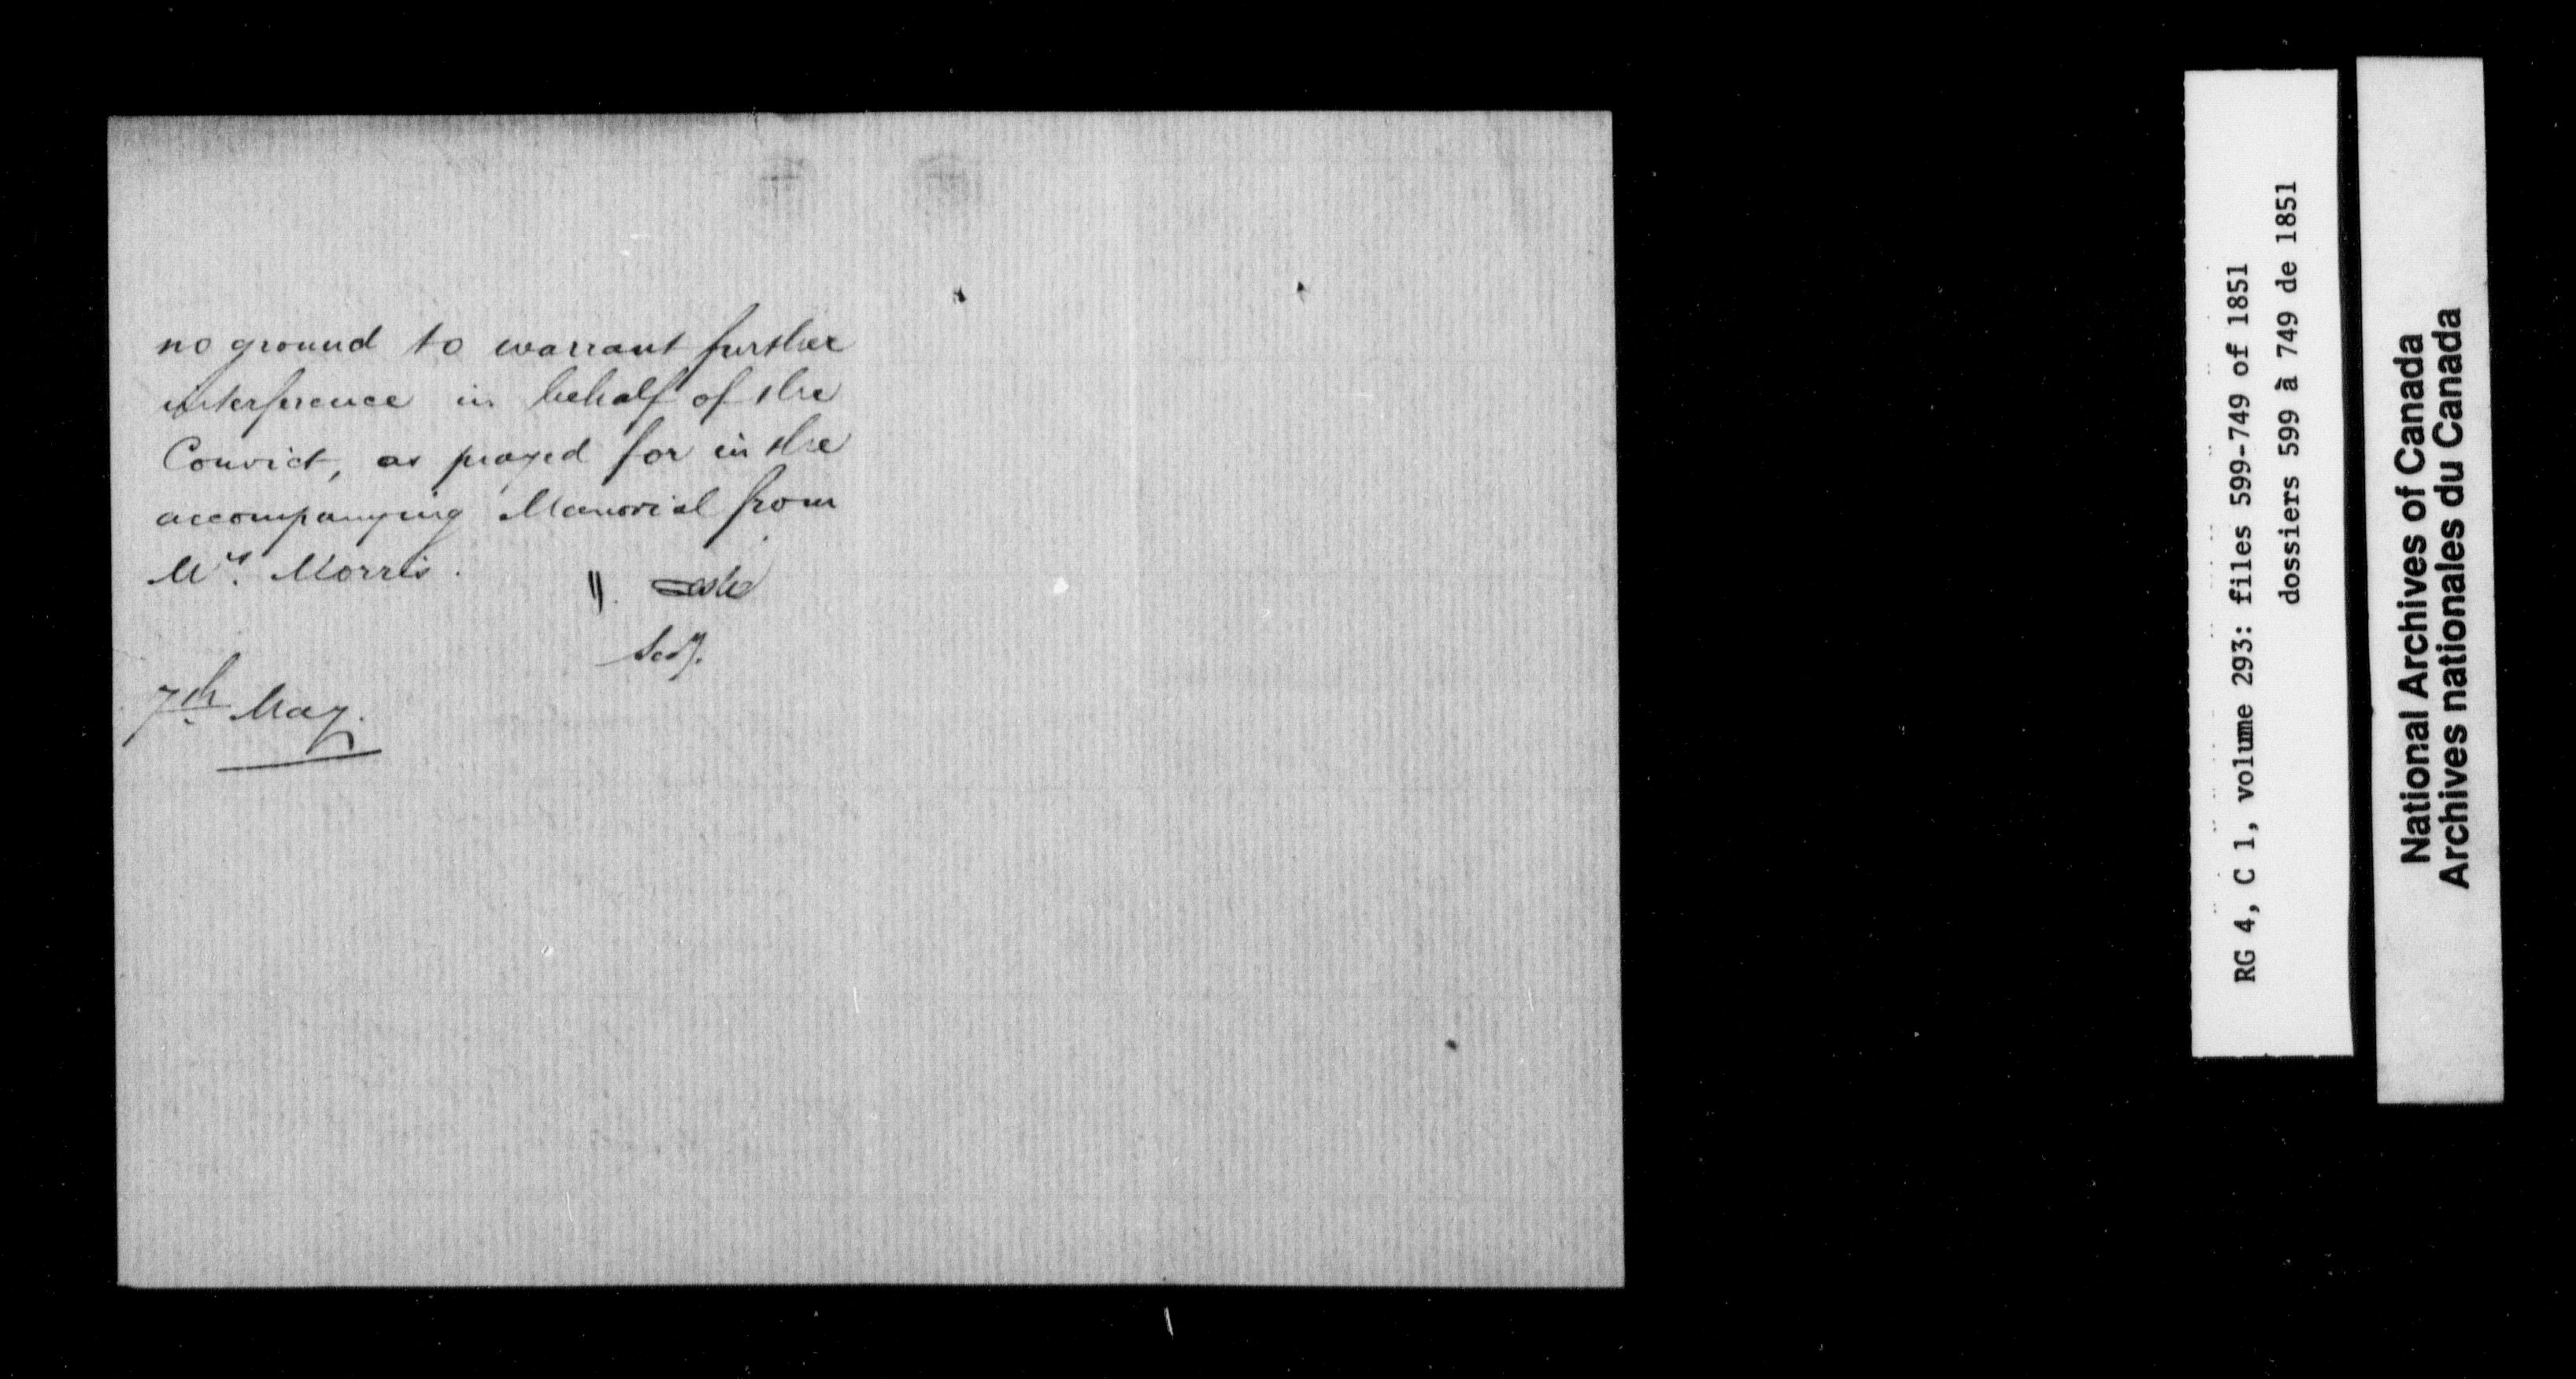 no ground to warrant further
interference in behalf of the
Convict, as prayed for in the
accompanying Memorial from
Mrs. Morris.
Secy.
7th May.
RG 4, C 1, volume 293: files 599-749 of 1851
dossiers 599 à 749 de 1851
National Archives of Canada
Archives nationales du Canada